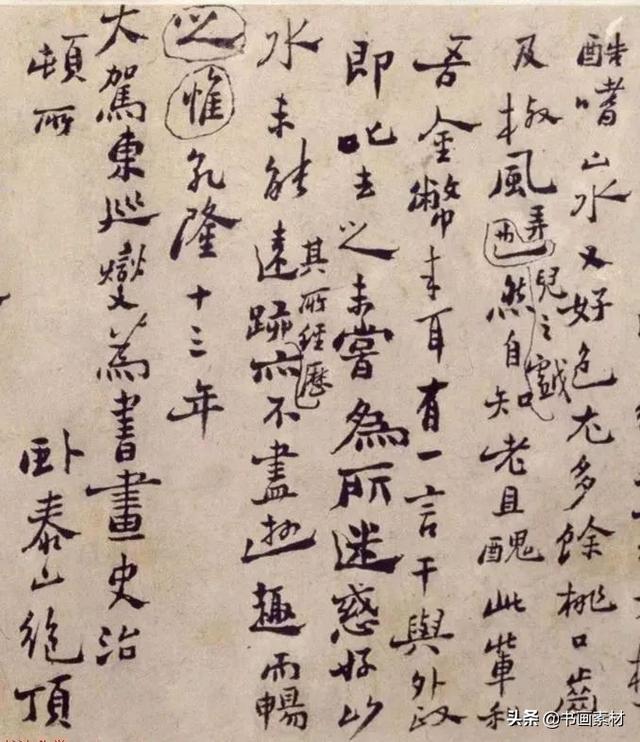 酷嗜山水又好色尤多餘桃口齒
及椒風弄兒之戲然自知老且醜此輩利
吾金幣来耳有一言干與外政
即叱去之未嘗為所迷惑好山
水未能遠跡其所經歷亦不盡遊趣雨暢
之惟乹隆十三年
大駕東巡爕為書畫史治
頓所
卧泰山絶頂
头条 @书画素材